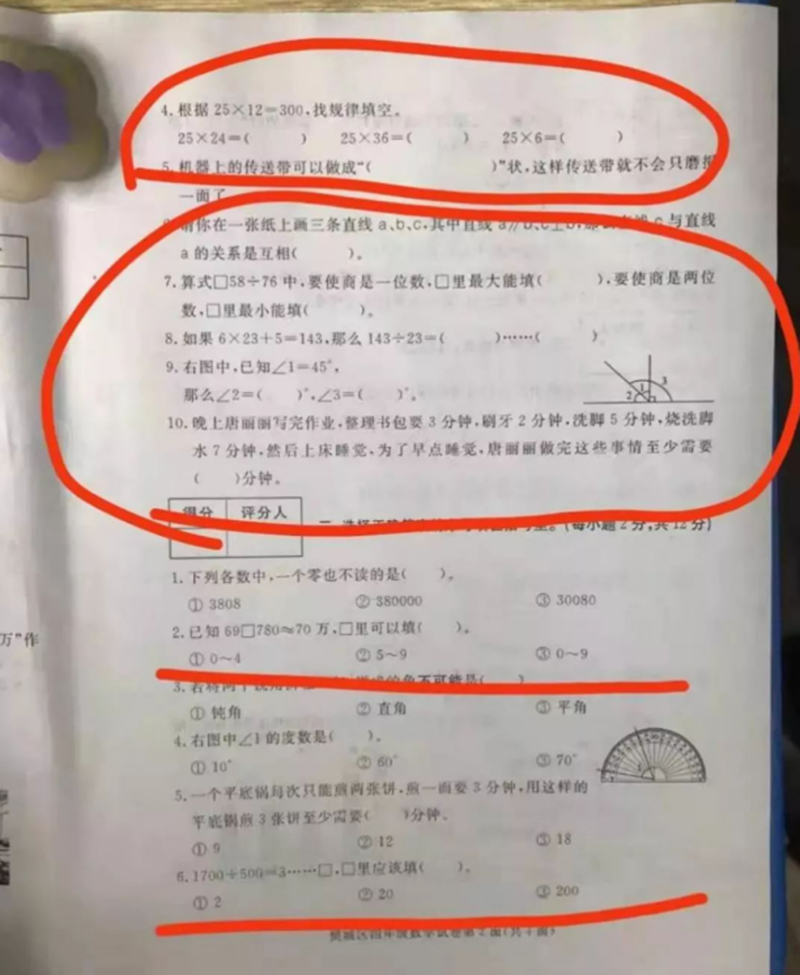 4.根据 25×12=300,找规律填空。
25×24=(　　) 25×36=(　　) 25×6=(　　)
5.机器上的传送带可以做成“(　　)”状,这样传送带就不会只磨损
一面了
请你在一张纸上画三条直线 a、b、c,其中直线 a∥b、c⊥b,那么直线 c 与直线
a 的关系是互相(　　)。
7.算式□58÷76 中,要使商是一位数,□里最大能填(　　),要使商是两位
数,□里最小能填(　　)。
8.如果 6×23+5=143,那么 143÷23=(　　)……(　　)
9.右图中,已知∠1=45°,
那么∠2=(　　)°,∠3=(　　)°。
1
2
3
10.晚上唐丽丽写完作业,整理书包要 3 分钟,刷牙 2 分钟,洗脚 5 分钟,烧洗脚
水 7 分钟,然后上床睡觉,为了早点睡觉,唐丽丽做完这些事情至少需要
(　　)分钟。
得分 评分人
(每小题 2 分,共 12 分)
1.下列各数中,一个零也不读的是(　　)。
① 3808 ② 380000 ③ 30080
2.已知 69□780≈70 万,□里可以填(　　)。
万”作
① 0~4 ② 5~9 ③ 0~9
3.若将两个 的角不可能是(　　)
① 钝角 ② 直角 ③ 平角
4.右图中∠1 的度数是(　　)。
① 10° ② 60° ③ 70°
5.一个平底锅每次只能煎两张饼,煎一面要 3 分钟,用这样的
平底锅煎 3 张饼至少需要(　　)分钟。
① 9 ② 12 ③ 18
6.1700÷500=3……□,□里应该填(　　)。
① 2 ② 20 ③ 200
樊城区四年级数学试卷第 2 面(共 4 面)